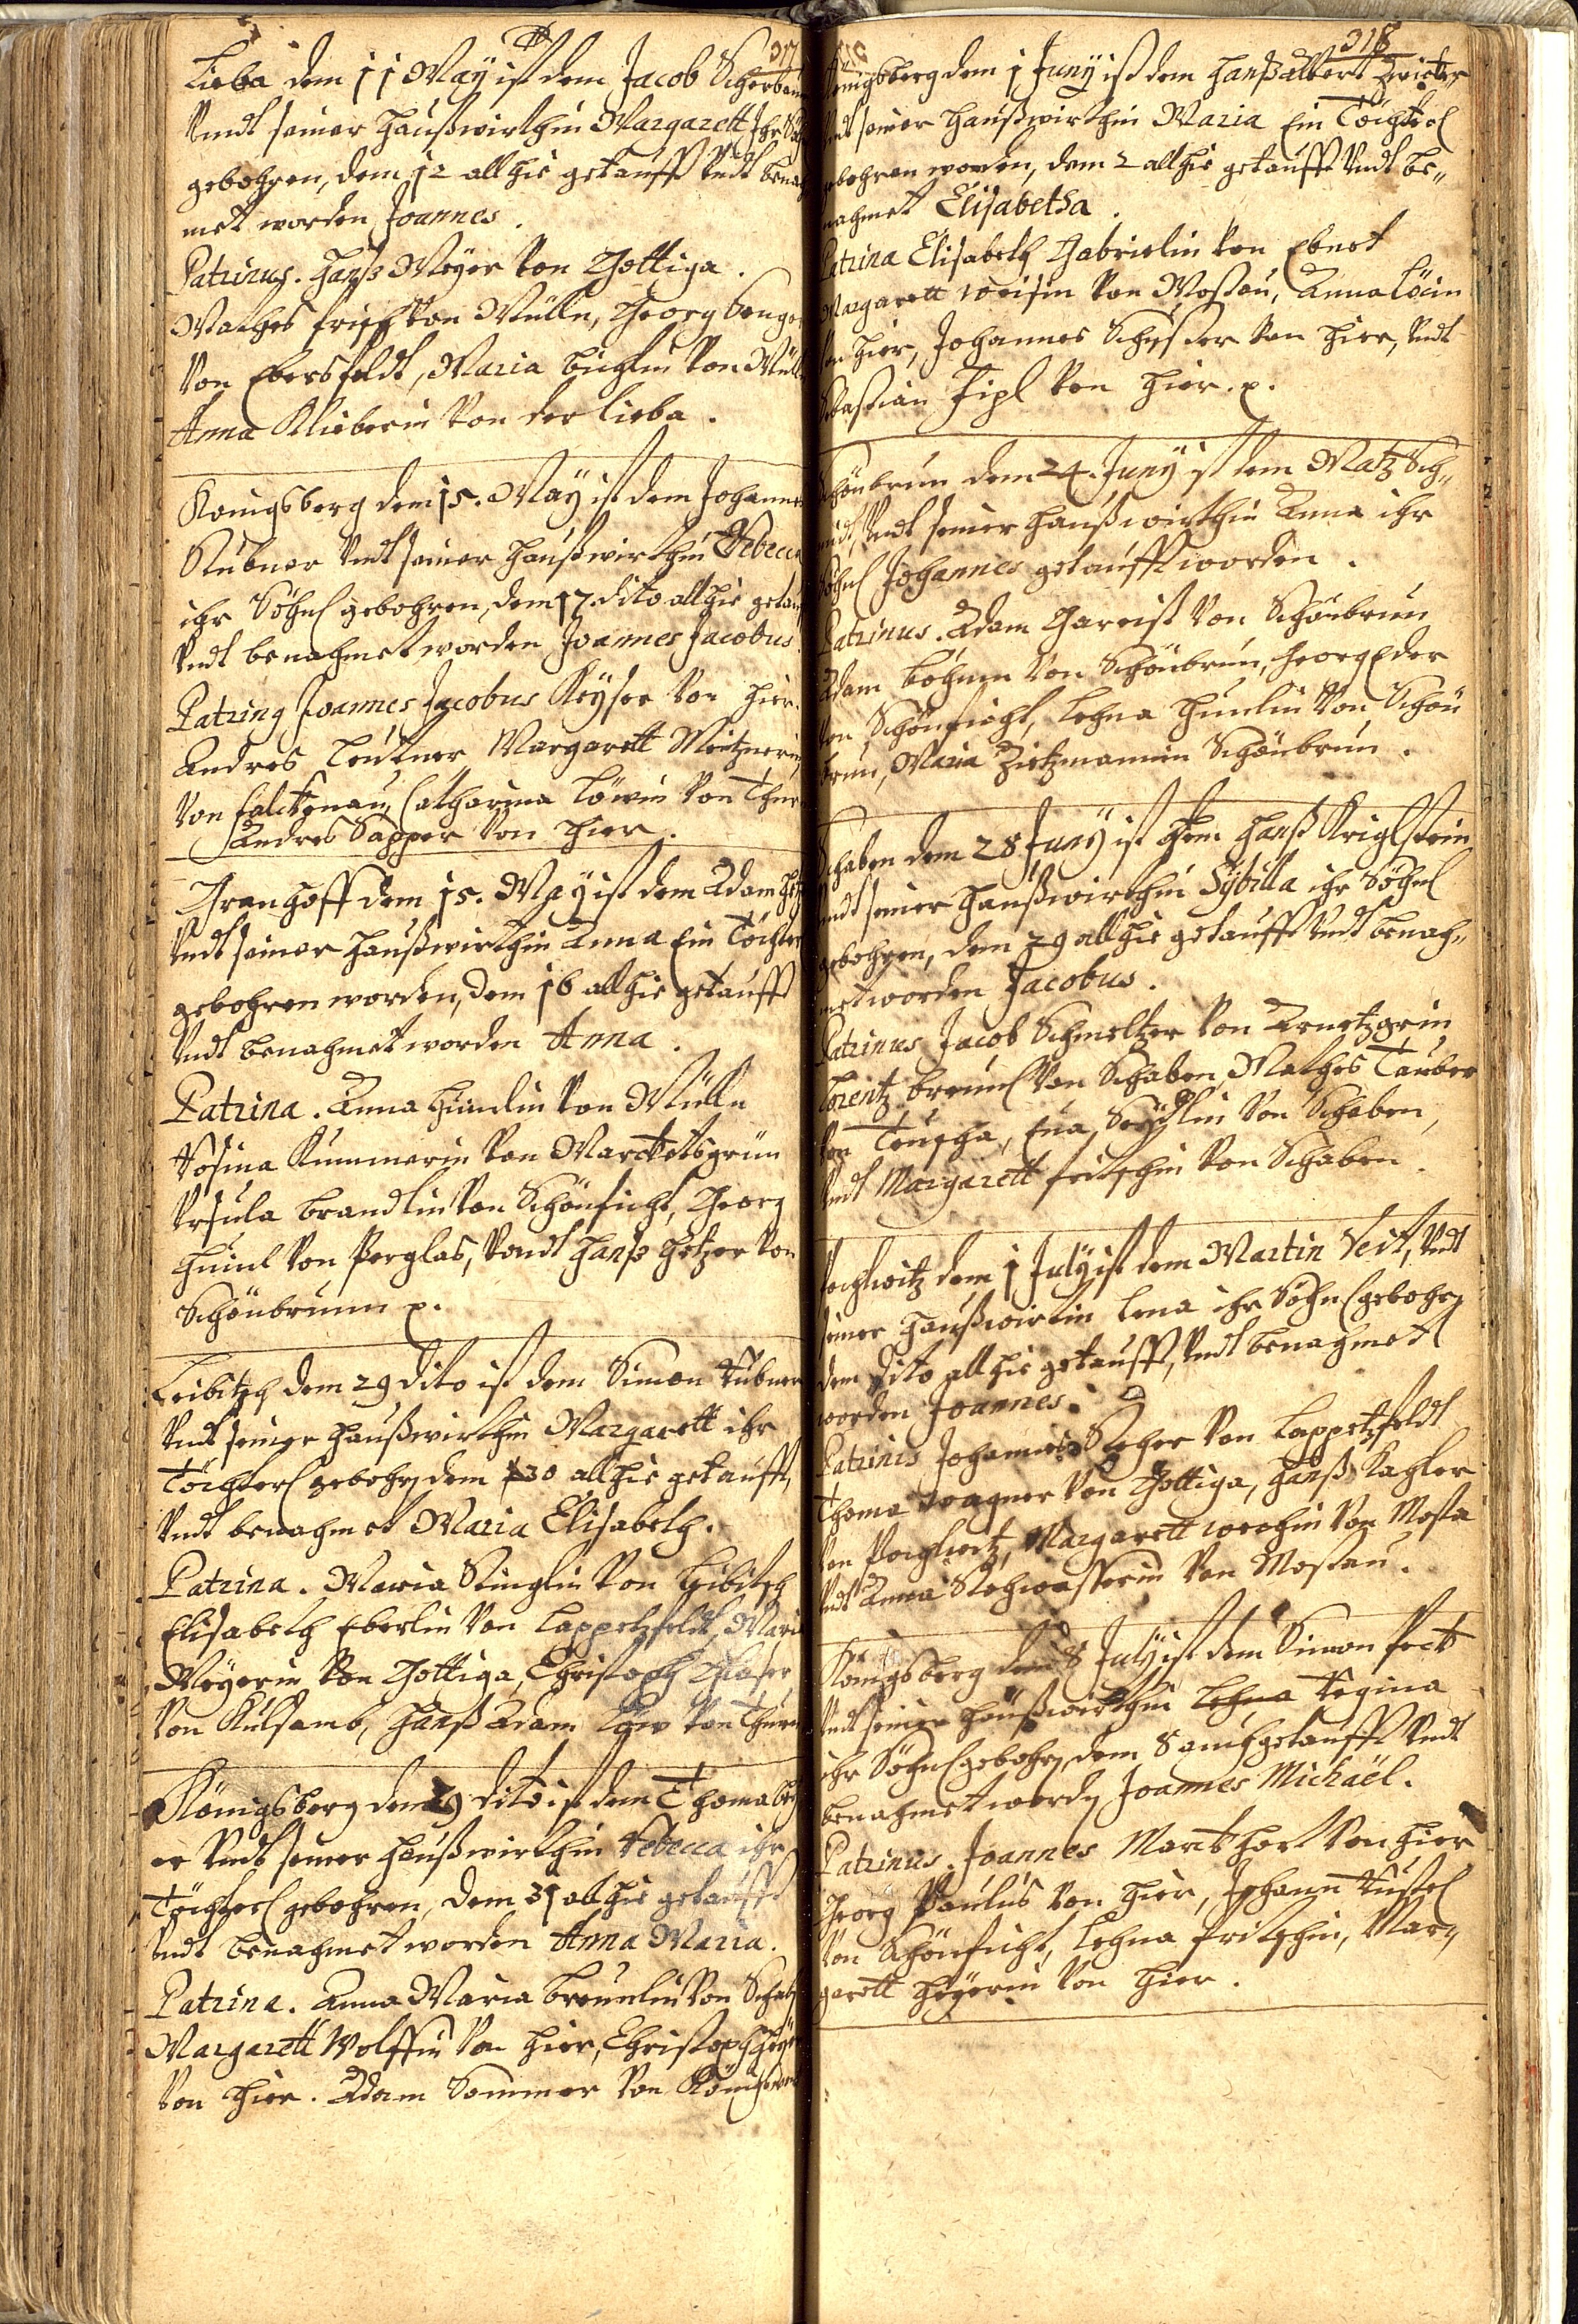 317
Lieba dem 11 May ist dem Jacob Scherbaum
Vndt seiner Haußwirthin Margarett Ihr
gebohren, dem 12 allhie getaufft Vndt benah
met worden Joannes.
Patrinus. Hanß Meyer Von Gottiga.
Mathes frisch von Mülln, Georg
Von Ebersfeldt, Maria Büchlin Von Mülln
Anna Klieberin Von der Lieba.
Königsberg dem 15. May ist dem Johannes
Stübner Vndt seiner Haußwirthin Rebecca
ihr Söhnl gebohren, dem 17. dito allhie getauf
Vndt benahmet worden Joannes Jacobus.
Patring Joannes Jacobus Keyser Von hier.
Andres Leutner, Margarett Meitznerin
Von Falckenau, Catharina Löwin Von Thurn
Andres Sapper Von hier.
Granhoff dem 15. May ist dem Adam
Vndt seiner Haußwirthin Anna Ein Töchter
gebohren worden, dem 16 allhie getaufft
Vndt benahmet worden Anna.
Patrina. Anna Heinlin Von Mülln
Rosina Kummerin Von Marcketsgrün
Vrsula Brandlin Von Schönficht, Georg
Heinl Von Perglas, Vundt Hanß Hetzer Von
Schönbrunn p.
Leibitsch dem 29 dito ist dem Simon Stübner
Vndt seiner Haußwirthin Margarett ihr
Töchterl gebohrn dem 30 allhie getaufft,
Vndt benahmet Maria Elisabeth.
Patrina. Maria Stinglin Von Leibitsch
Elisabeth Eberlin Von Lappetzfeldt, Maria
Meyerin Von Gottiga, Christoph Glaser
Von Kulsamb, Hanß Adam Löw Von Thurn
Königsberg dem 29 dito ist dem Thoma
er Vndt seiner Haußwirthin Rebecca ihr
Töchterl gebohren, dem 31 alhie getaufft
Vndt benahmet worden Anna Maria.
Patrina. Anna Maria Breunlin Von
Margarett Wolffin Von hier, Christoph
Von hier. Adam Sommer Von
318
Königsberg dem 1 Juny ist dem Hanß Albert
Vndt seiner Haußwirthin Maria Ein Töchterl
gebohren worden, dem 2 allhie getaufft Vndt be„
nahmet Elisabetha.
Patrina Elisabeth Gabrielin Von Ebnet
Margarett Weisin Von Mostau, Anna Löwin
Von hier, Johannes Von hier, Vndt
Sebastian Zipl Von hier. p.
Schönbrun dem 24. Juny ist dem Matz Sch„
midt, Vndt seiner Haußwirthin Anna ihr
Söhnl Johannes getaufft worden.
Patrinus. Adam Gareist Von Schönbrun
Adam Böhmen Von Schönbrun, Georg Eder
Von Schönficht, Lehna Heinlin Von Schön
brun, Maria Dietzmannin Schönbrun.
Schaben dem 28 Juny ist dem Hanß Kriglstein
Vndt seiner Haußwirthin Sybilla ihr Söhnl
gebohren, dem 29 allhie getaufft Vndt benah„
met worden Jacobus.
Patrinus Jacob Schmeltzer Von Arnetzgrün
Lorentz Breunl Von Schaben, Mathes Tauber
Von Teuscha, Eua Von Schaben,
Vndt Margarett fritschin Von Schaben.
Pochlwitz dem 1 July ist dem Martin Veit, Vndt
seiner Haußwirtin Lena ihr Söhnl gebohrn
dem dito allhie getaufft, Vndt benahmet
worden Joannes.
Patrinis Johannes Von Lappetzfeldt
Thoma Wagner Von Gottiga, Hanß Kagler
Von Pochlwitz, Margarett Von Mosta
Vndt Anna Stohwasserin Von Mostau.
Königsberg dem 8 July ist dem Simon Peck
Vndt seiner Haußwirthin Lehna Regina
ihr Söhnl gebohrn dem 8 auch getaufft Vndt
benahmet wordn Joannes Michaël.
Patrinus. Joannes Markhart Von hier
Georg Paulus Von hier, Johann
Von Schönficht, Lehna fritschin, Mar„
garett Heyerin Von hier.